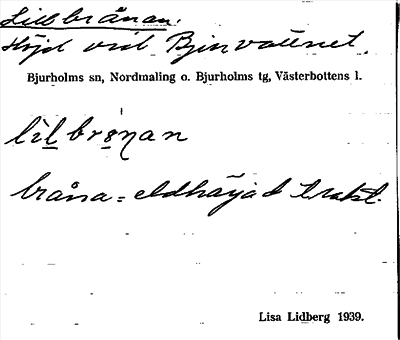 Lillbrånan.
Höjd vid Bjurvattnet.
Bjurholms sn, Nordmaling o. Bjurholms tg, Västerbottens l.
lilbrånan
bråna = eldhärjad trakt.
Lisa Lidberg 1939.